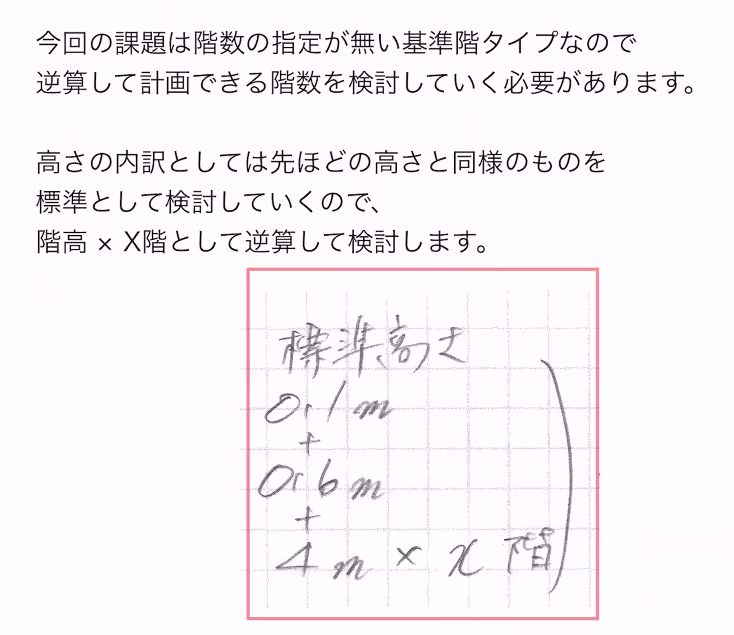 今回の課題は階数の指定が無い基準階タイプなので
逆算して計画できる階数を検討していく必要があります。
高さの内訳としては先ほどの高さと同様のものを
標準として検討していくので、
階高 × X階として逆算して検討します。
標準高さ
0.1m
+
0.6m
+
4m × x階